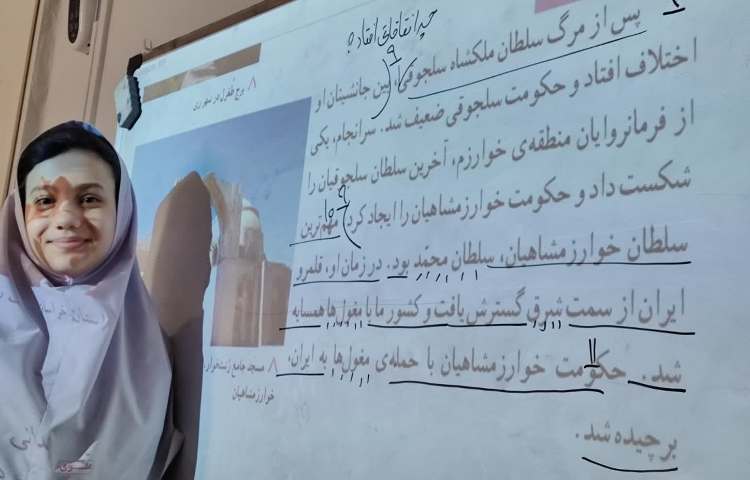 چه اتفاقاتی افتاد؟
پس از مرگ سلطان ملکشاه سلجوقی، بین جانشینان او
۹
اختلاف افتاد و حکومت سلجوقی ضعیف شد. سرانجام، یکی
از فرمانروایان منطقه‌ی خوارزم، آخرین سلطان سلجوقیان را
شکست داد و حکومت خوارزمشاهیان را ایجاد کرد. مهم‌ترین
۱۰
سلطان خوارزمشاهیان، سلطان محمّد بود. در زمان او، قلمرو
ایران از سمت شرق گسترش یافت و کشور ما با مغول‌ها همسایه
شد. حکومت خوارزمشاهیان با حمله‌ی مغول‌ها به ایران،
۱۱
برچیده شد.
برج طغرل در شهر ری
مسجد جامع
خوارزمشاهیان